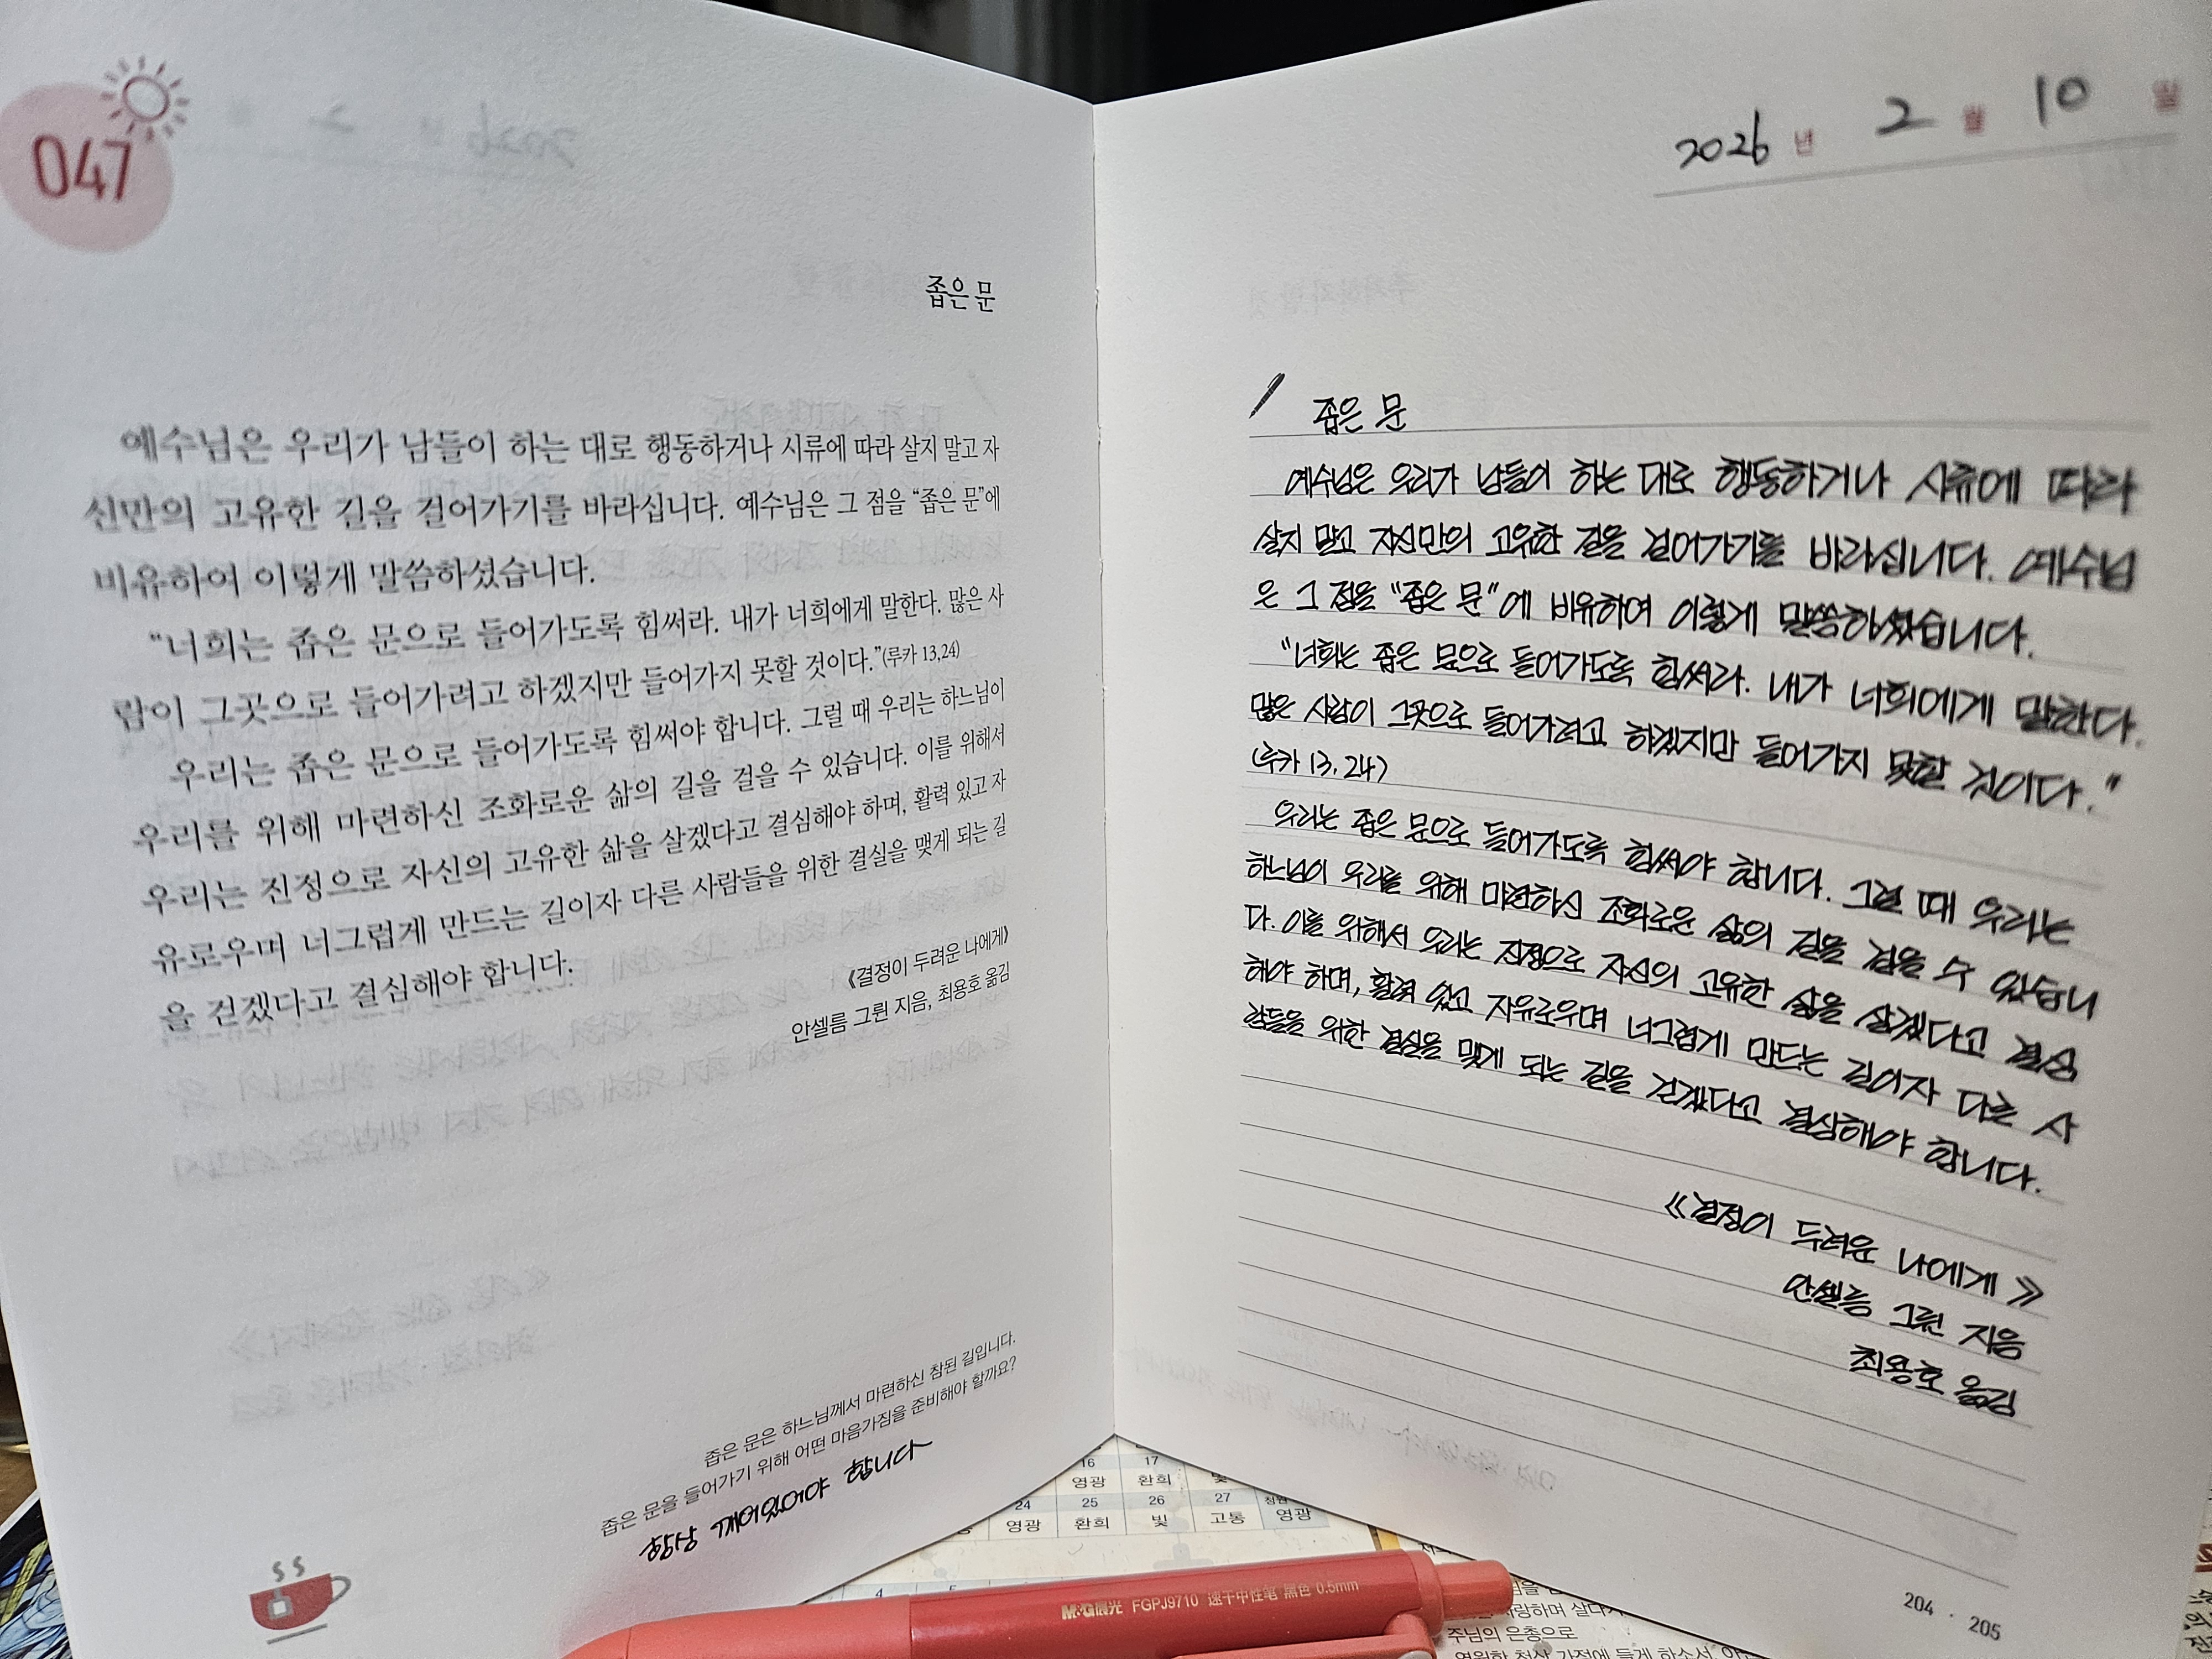 047
좁은 문
예수님은 우리가 남들이 하는 대로 행동하거나 시류에 따라 살지 말고 자
신만의 고유한 길을 걸어가기를 바라십니다. 예수님은 그 점을 “좁은 문”에
비유하여 이렇게 말씀하셨습니다.
“너희는 좁은 문으로 들어가도록 힘써라. 내가 너희에게 말한다. 많은 사
람이 그곳으로 들어가려고 하겠지만 들어가지 못할 것이다.”(루카 13,24)
우리는 좁은 문으로 들어가도록 힘써야 합니다. 그럴 때 우리는 하느님이
우리를 위해 마련하신 조화로운 삶의 길을 걸을 수 있습니다. 이를 위해서
우리는 진정으로 자신의 고유한 삶을 살겠다고 결심해야 하며, 활력 있고 자
유로우며 너그럽게 만드는 길이자 다른 사람들을 위한 결실을 맺게 되는 길
을 걷겠다고 결심해야 합니다.
《결정이 두려운 나에게》
안셀름 그륀 지음, 최용호 옮김
좁은 문은 하느님께서 마련하신 참된 길입니다.
좁은 문을 들어가기 위해 어떤 마음가짐을 준비해야 할까요?
항상 깨어있어야 합니다
2026 년 2 월 10 일
좁은 문
예수님은 우리가 남들이 하는 대로 행동하거나 시류에 따라
살지 말고 자신만의 고유한 길을 걸어가기를 바라십니다. 예수님
은 그 점을 “좁은 문”에 비유하여 이렇게 말씀하셨습니다.
“너희는 좁은 문으로 들어가도록 힘써라. 내가 너희에게 말한다.
많은 사람이 그곳으로 들어가려고 하겠지만 들어가지 못할 것이다.”
(루카 13, 24)
우리는 좁은 문으로 들어가도록 힘써야 합니다. 그럴 때 우리는
하느님이 우리를 위해 마련하신 조화로운 삶의 길을 걸을 수 있습니
다. 이를 위해서 우리는 진정으로 자신의 고유한 삶을 살겠다고 결심
해야 하며, 활력 있고 자유로우며 너그럽게 만드는 길이자 다른 사
람들을 위한 결실을 맺게 되는 길을 걷겠다고 결심해야 합니다.
《결정이 두려운 나에게》
안셀름 그륀 지음
최용호 옮김
204 · 205
16 17
영광 환희 빛
24 25 26 27
영광 환희 빛 고통 영광
4
M&G晨光 FGPJ9710 速干中性笔 黑色 0.5mm
주님의 은총으로